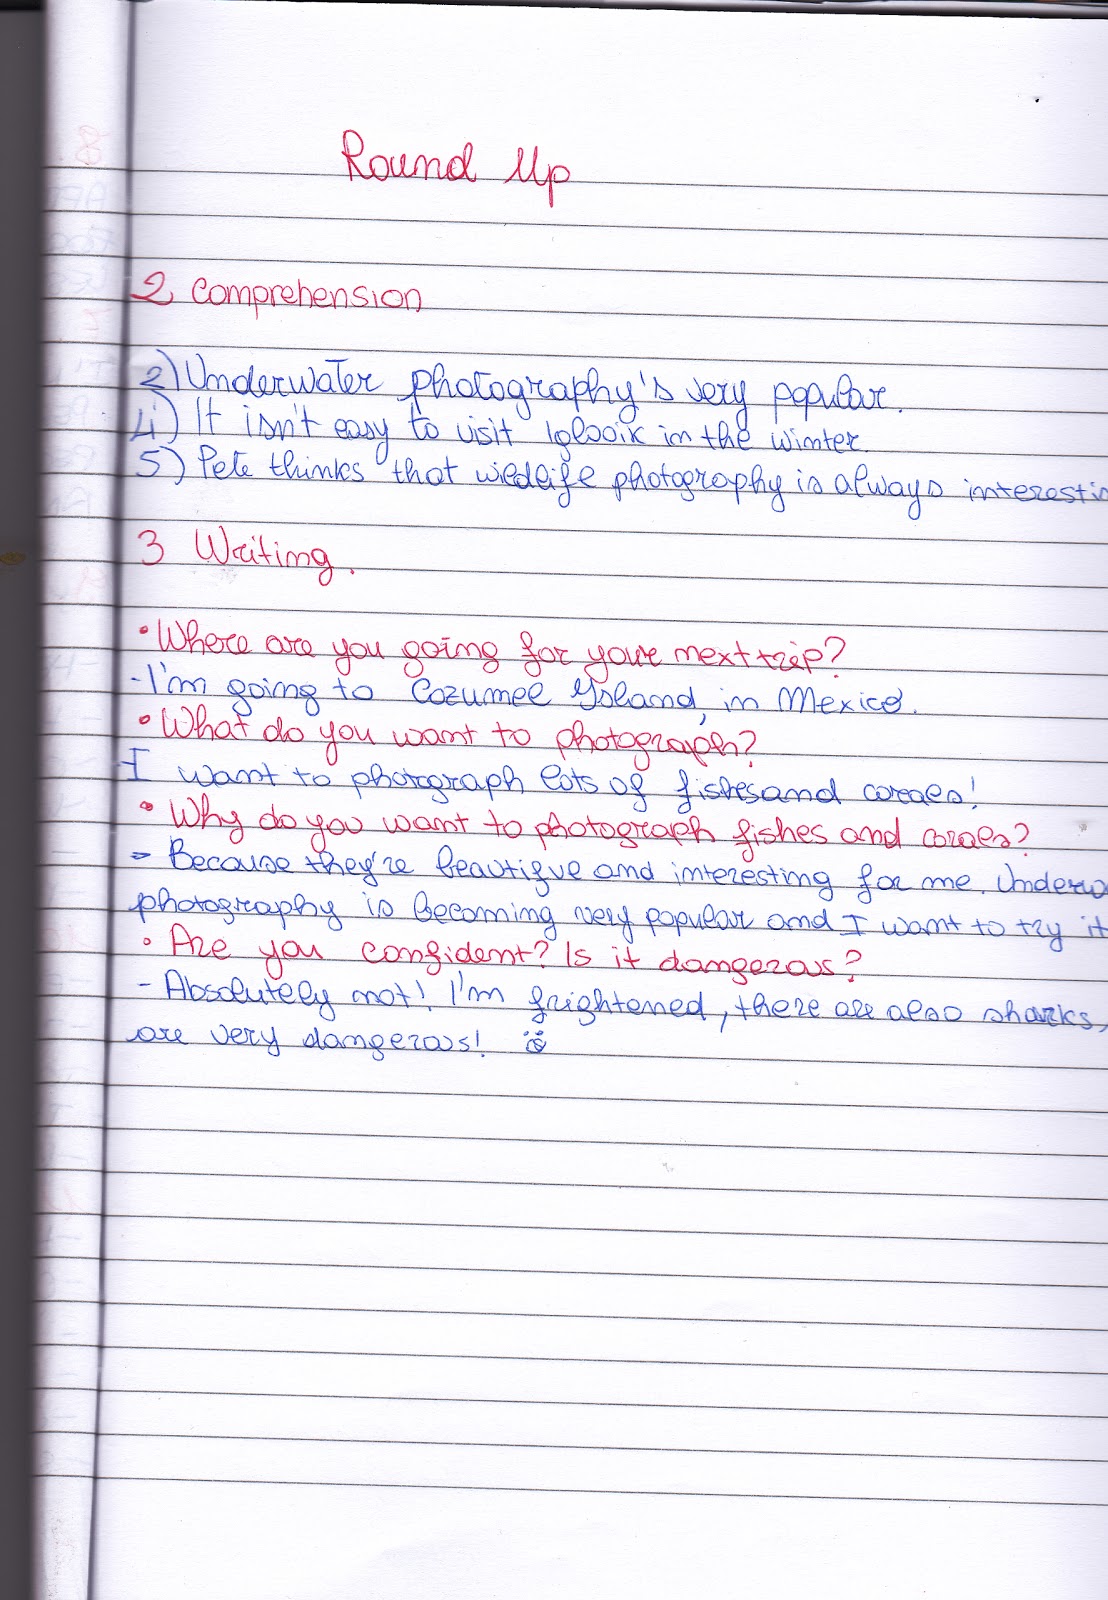 Round Up
2 comprehension
2) Underwater photography's very popular.
4) It isn't easy to visit Igloolik in the winter.
5) Pete thinks that wildlife photography is always interestin
3 Writing.
• Where are you going for your next trip?
- I'm going to Cozumel Island, in Mexico.
• What do you want to photograph?
I want to photograph lots of fishes and corals!
• Why do you want to photograph fishes and corals?
- Because they're beautiful and interesting for me. Underw
photography is becoming very popular and I want to try it
• Are you confident? Is it dangerous?
- Absolutely not! I'm frightened, there are also sharks,
are very dangerous!